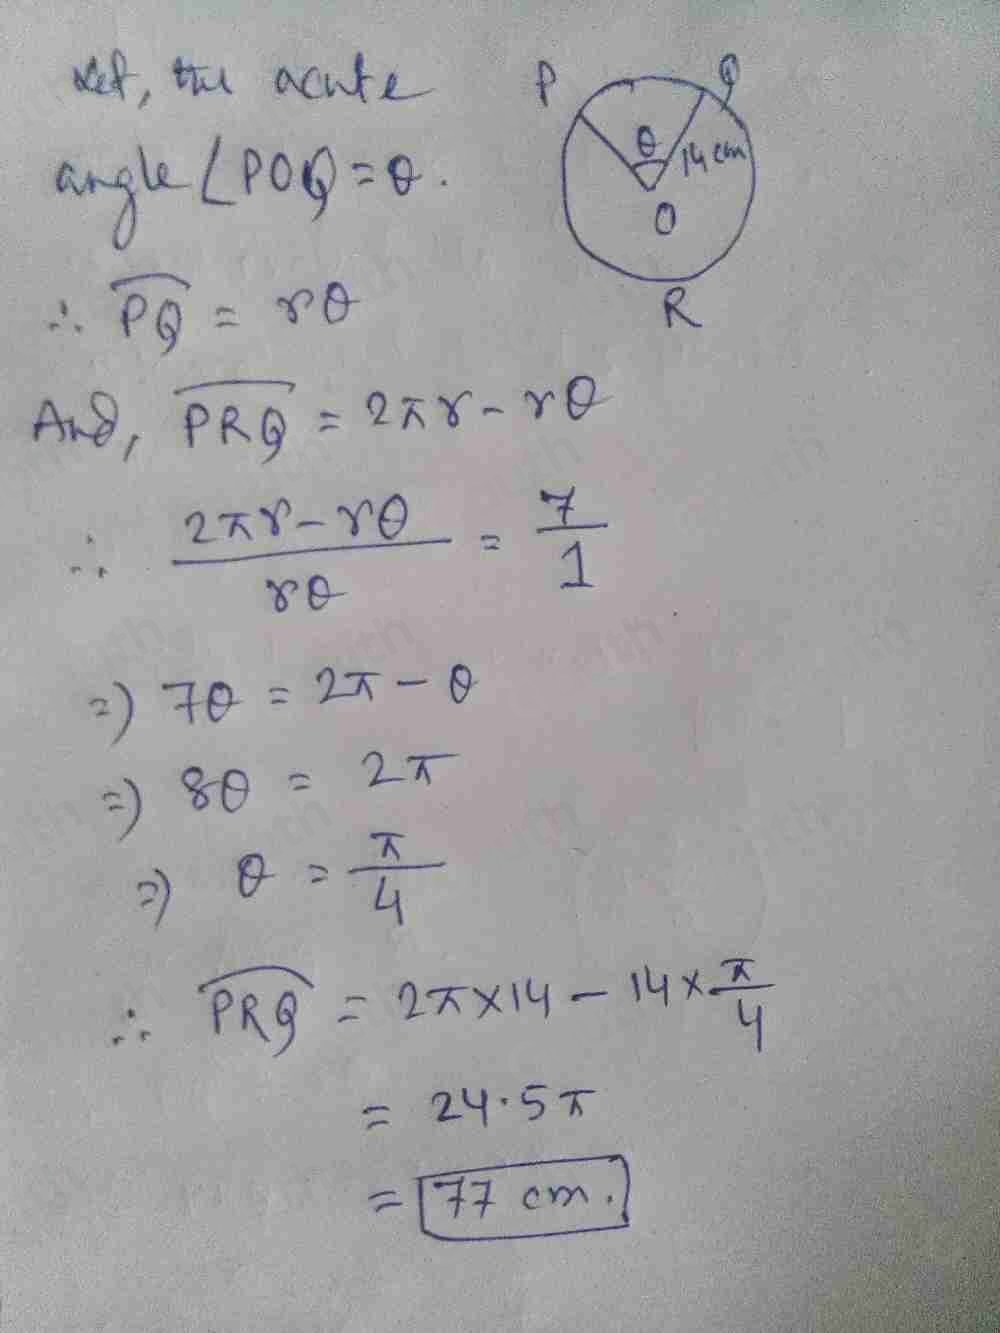 Let, the acute
angle ∠POQ = θ.
P
Q
θ
14 cm
O
R
∴ PQ = rθ
And, PRQ = 2πr - rθ
∴ 2πr - rθ / rθ = 7/1
⇒) 7θ = 2π - θ
⇒) 8θ = 2π
⇒) θ = π/4
∴ PRQ = 2π×14 - 14×π/4
= 24.5π
= 77 cm.